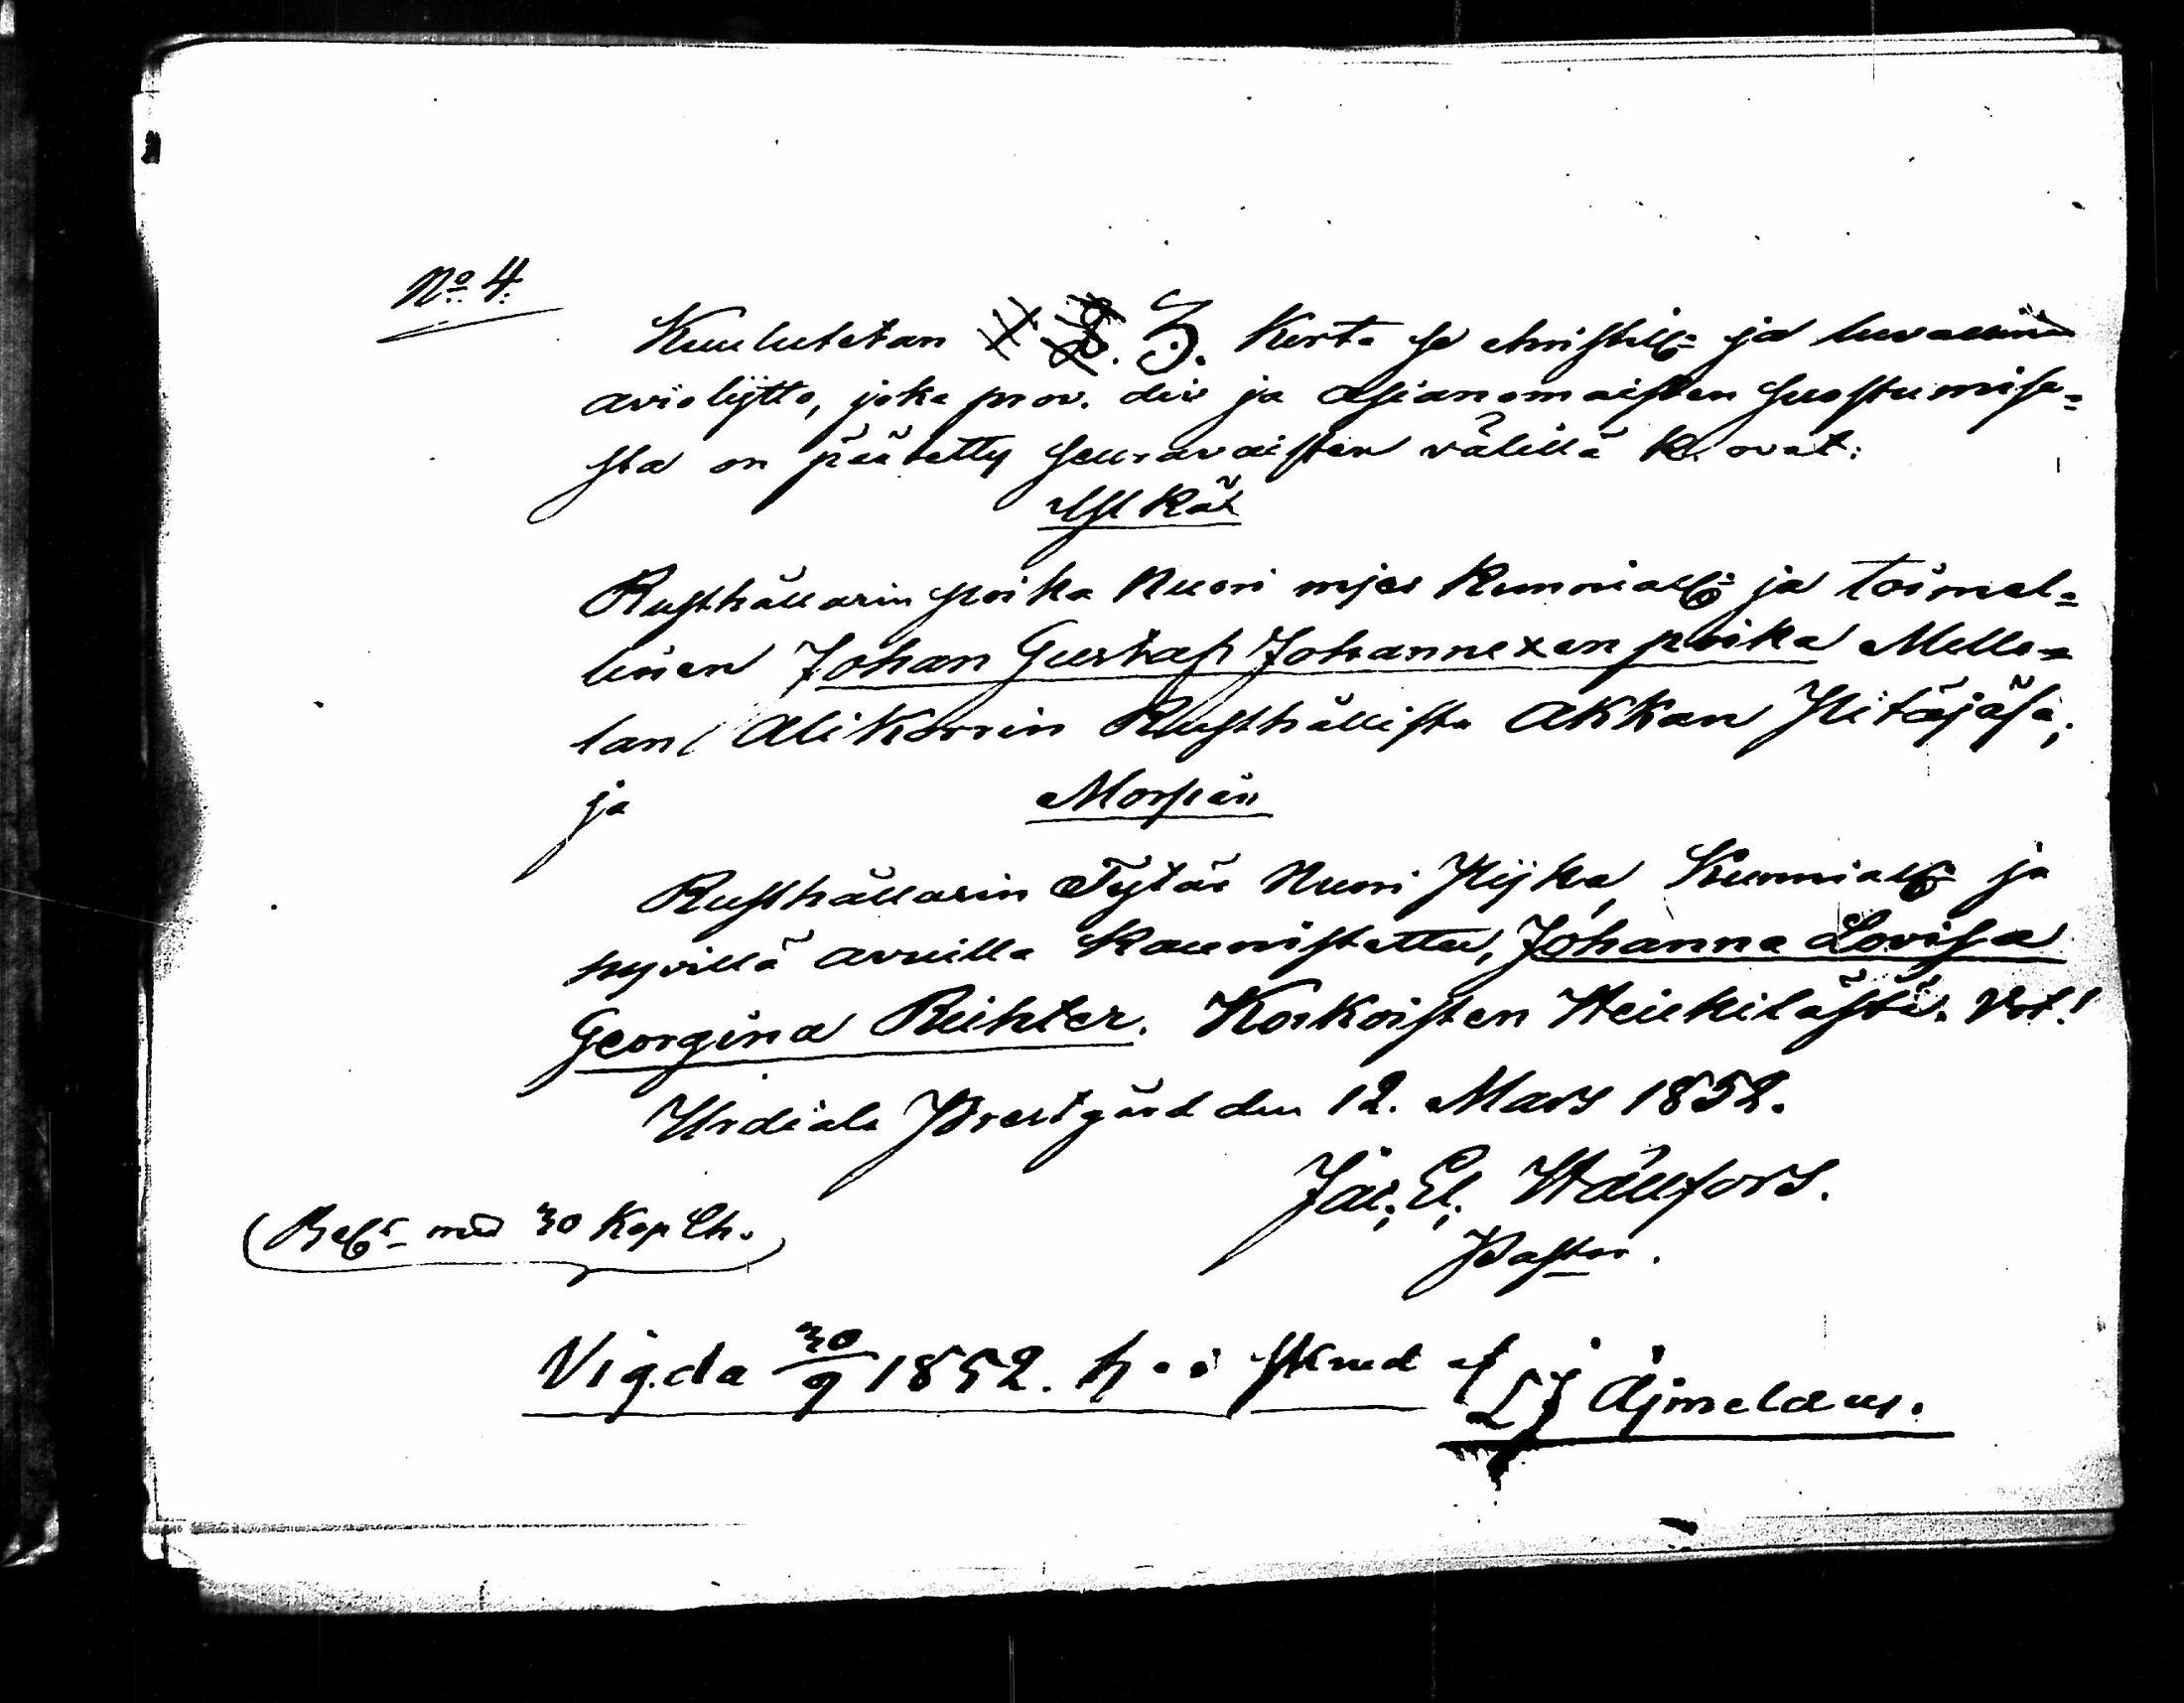 No 4.
Kuulutetan 1. 2. 3. Kerta se christill: ja luvallinen
avioliјtto, joka prov. div ja asianomaisten suostumise=
sta on päätetty seuravaisten välillä k. ovat:
Ylkä
Rusthållarin poika Nuori mies kunniall: ja toimel=
linen Johan Gustaf Johannexen poika Mello=
lan Alikorrin Rusthållista Akkan Pitäjäsä;
ja Morsian
Rusthållarin Tytär Nuori Pijka, Kunniall: ja
hyvillä avuilla kaunistettu, Johanna Lovisa
Georgina Richter. Korkoisten Heickilästä. Vot!
Urdiala Prestgård den 12. Mars 1852.
Jac. El. Hällfors.
Pastor.
(Bes. med 30 Kop Ch.)
Vigda 30/9 1852. h. i af LJ Äjmelæus.